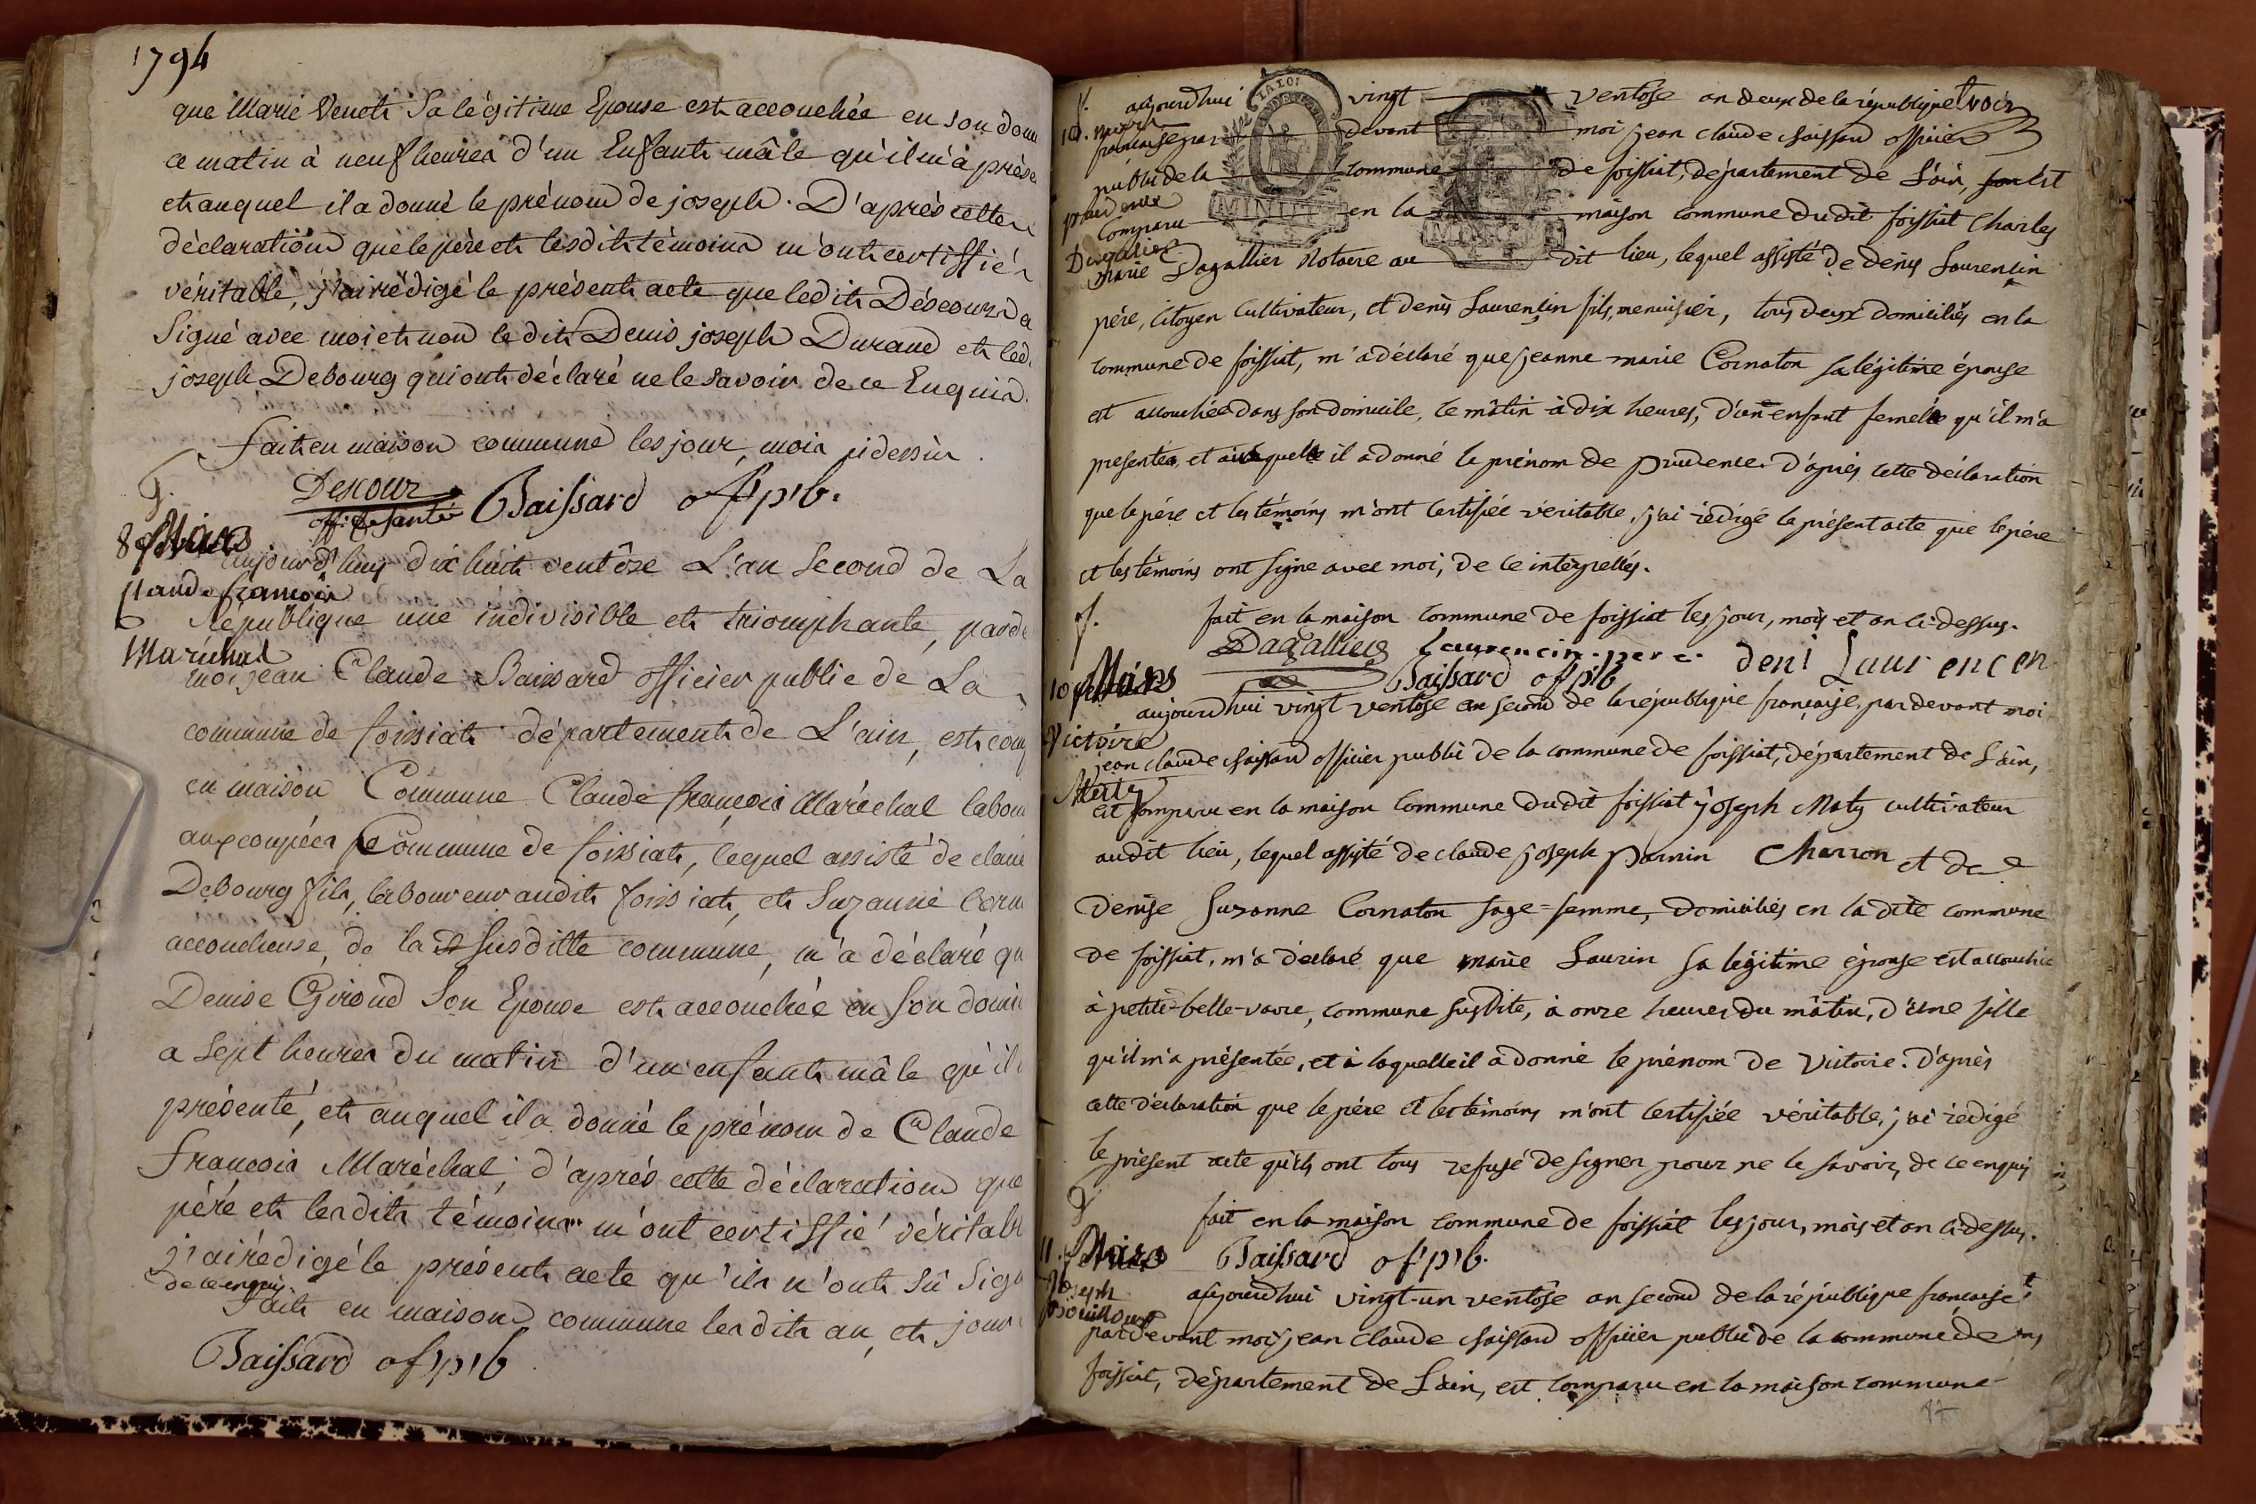 1794
que Marie Venet Sa légitime Epouse est accouchée en son dom
ce matin à neuf heures d'un Enfant mâle qu'il m'a prése
et auquel il a donné le prénom de joseph. D'après cette
déclaration que le père et lesdits témoins m'ont certiffiée
véritable, j'ai rédigé le présent acte que ledit Déscour a
Signé avec moi et non le dit Denis joseph Durand et led.
joseph Debourg qui ont déclaré ne le savoir de ce Enquis.
fait en maison commune les jour, mois cidessus.
Descour
off. de santé
Baissard off. p. b.
8 Mars
Claude francois
Maréchal
aujourd'huy dix huit ventôse L'an Second de La
République une indivisible et triomphante, parde
moi jean Claude Baissard officier public de La
commune de foissiat département de L'ain, est comp
en maison Commune Claude françois Maréchal labou
aux coupées Commune de foissiat, lequel assisté de claude
Debourg fils, laboureur audit foissiat, et Suzanne Corn
accoucheuse, de la Susditte commune, m'a déclaré qu
Denise Giroud Son Epouse est accouchée en Son domi
a Sept heures du matin d'un enfant mâle qu'il
présenté, et auquel il a donné le prénom de Claude
françois Maréchal; d'après cette déclaration que
père et lesdits témoins m'ont certiffié véritabl
j'ai rédigé le présent acte qu'ils n'ont sû Sign
de ce enquis
Fait en maison commune lesdits an, et jour
Baissard off. p. b
LA LOI
MINUTE
f.
10. mars
prudence
Dagallier
aujourd'hui vingt ventose an deux de la république
francaise par devant moi jean claude baissard officier
public de la commune de foissiat, département de L'ain, est
comparu en la maison commune dudit foissiat Charles
marie Dagallier Notaire au dit lieu, lequel assisté de denis Laurencin
père, citoyen cultivateur, et denis Laurencin fils, menuisier, tous deux domiciliés en la
commune de foissiat, m'a déclaré que jeanne marie Cornaton sa légitime épouse
est accouchée dans son domicile, ce mâtin à dix heures, d'un enfant femelle qu'il m'a
presentée, et à laquelle il a donné le prénom de prudence. D'après cette déclaration
que le père et les témoins m'ont certifiée véritable, j'ai rédigé le présent acte que le père
et les témoins ont signé avec moi, de ce interpellés.
fait en la maison commune de foissiat les jour, mois et an ci-dessus.
Dagallier Laurencin père deni Laurencen
Baissard off. p. b
f.
10 Mars
Victoire
Maty
aujourd'hui vingt ventose an second de la république française, pardevant moi
jean claude baissard officier public de la commune de foissiat, département de L'ain,
est comparu en la maison commune dudit foissiat joseph Maty cultivateur
audit lieu, lequel assisté de claude joseph parnin Charron et de
denise Suzanne Cornaton sage=femme, domiciliés en la dite commune
de foissiat, m'a déclaré que marie Laurin sa légitime épouse est accouchée
à petite-belle-vavre, commune susdite, à onze heures du mâtin, d'une fille
qu'il m'a présentée, et à laquelle il a donné le prénom de Victoire. D'après
cette déclaration que le père et les témoins m'ont certifiée véritable, j'ai rédigé
le présent acte qu'ils ont tous refusé de signer pour ne le savoir, de ce enquis
fait en la maison commune de foissiat les jour, mois et an ci-dessus.
Baissard off. p. b.
11. Mars
Joseph
aujourd'hui vingt-un ventôse an second de la république francaise
pardevant moi jean claude baissard officier public de la commune de
foissiat, département de L'ain, est comparu en la maison commune